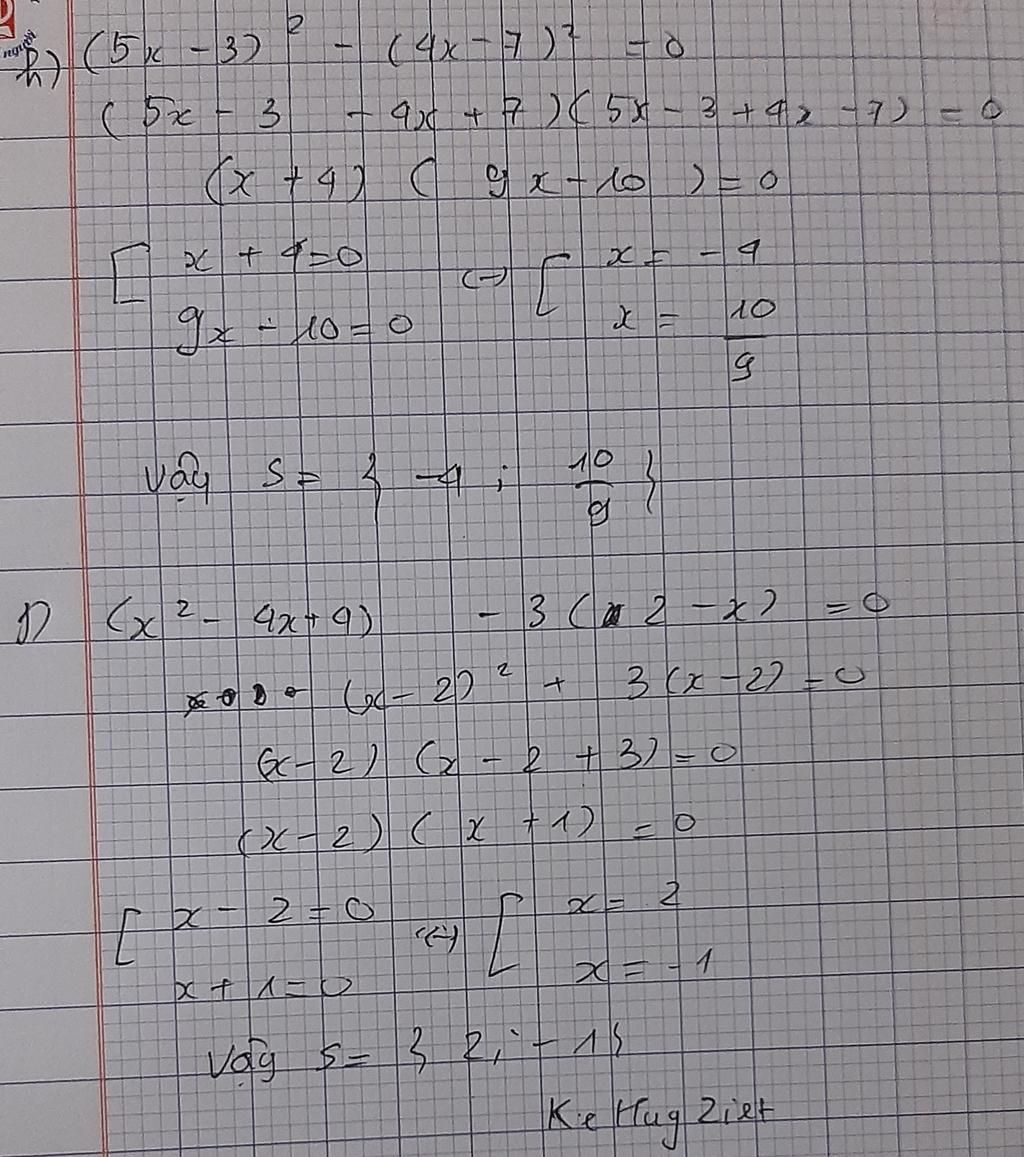 h) (5x - 3)² - (4x - 7)² = 0
(5x - 3 - 4x + 7)(5x - 3 + 4x - 7) = 0
(x + 4) (9x - 10) = 0
[ x + 4 = 0 <-> [ x = -4
9x - 10 = 0 x = 10/9
Vậy S = { -4 ; 10/9 }
1) (x² - 4x + 4) - 3(2 - x) = 0
(x - 2)² + 3(x - 2) = 0
(x - 2) (x - 2 + 3) = 0
(x - 2) (x + 1) = 0
[ x - 2 = 0 <-> [ x = 2
x + 1 = 0 x = -1
Vậy S = { 2 ; -1 }